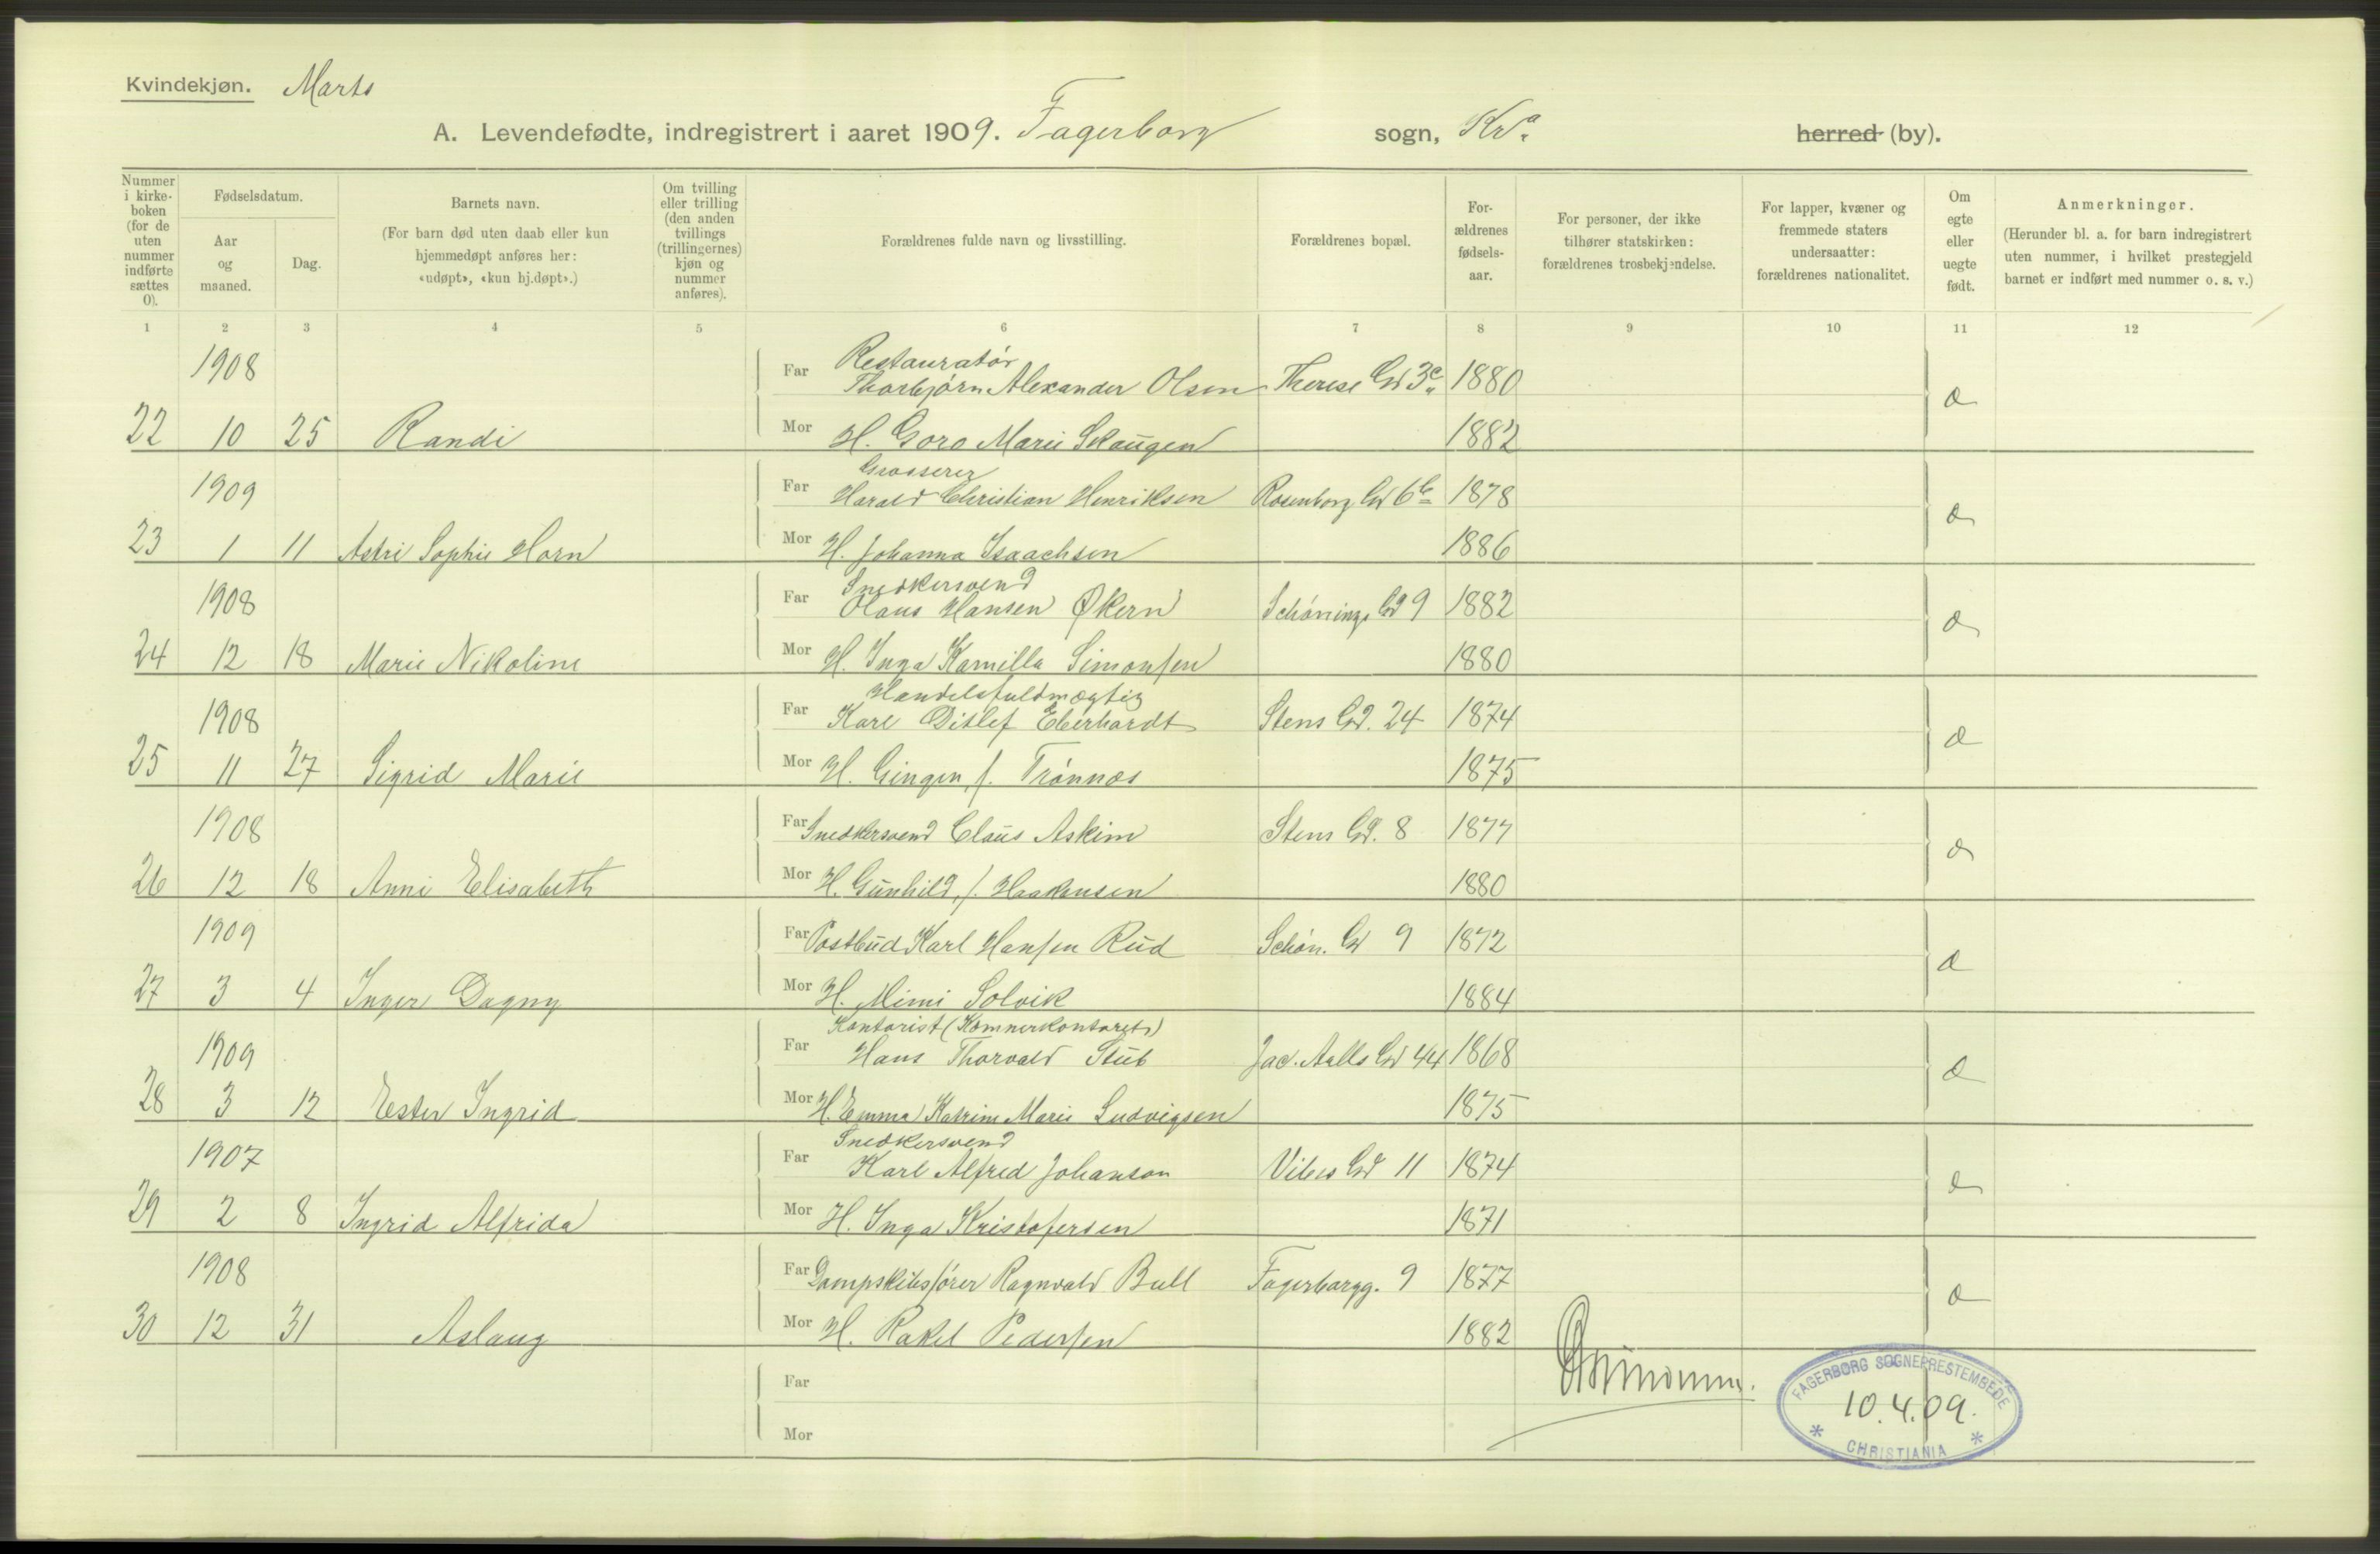 Kvindekjøn. Marts
A. Levendefødte, indregistrert i aaret 1909. Fagerborg sogn, Kra herred (by).
Nummer i kirke-boken (for de uten nummer indførte sættes 0).
Fødselsdatum.
Aar og maaned.
Dag.
Barnets navn.
(For barn død uten daab eller kun hjemmedøpt anføres her: «udøpt», «kun hj.døpt».)
Om tvilling eller trilling (den anden tvillings (trillingernes) kjøn og nummer anføres).
Forældrenes fulde navn og livsstilling.
Forældrenes bopæl.
For-ældrenes fødsels-aar.
For personer, der ikke tilhører statskirken: forældrenes trosbekjendelse.
For lapper, kvæner og fremmede staters undersaatter: forældrenes nationalitet.
Om egte eller uegte født.
Anmerkninger.
(Herunder bl. a. for barn indregistrert uten nummer, i hvilket prestegjeld barnet er indført med nummer o. s. v.)
1 2 3 4 5 6 7 8 9 10 11 12
1908 Far Restauratør
Thorbjørn Alexander Olsen Therese Gd 3c 1880 æ
22 10 25 Randi Mor H. Goro Marie Skaugen 1882
1909 Far Grosserer
Harald Christian Henriksen Rosenborg Gd 6b 1878 æ
23 1 11 Astri Sophie Horn Mor H. Johanna Isaachsen 1886
1908 Far Snedkersvend
Olaus Hansen Økern Schønings Gd 9 1882 æ
24 12 18 Marie Nikoline Mor H. Inga Kamilla Simonsen 1880
1908 Far Handelsfuldmægtig
Karl Ditlef Eberhardt Stens Gd. 24 1874 æ
25 11 27 Sigrid Marie Mor H. Gingen, f. Trønnæs 1875
1908 Far Snedkersvend Claus Askim Stens Gd. 8 1877 æ
26 12 18 Anni Elisabeth Mor H. Gunhild, f. Haakensen 1880
1909 Far Postbud Karl Hansen Rud Schøn. Gd 9 1872 æ
27 3 4 Inger Dagny Mor H. Mimi Solvik 1884
1909 Far Kontorist (Kæmnerkontoret)
Hans Thorvald Stub Jac. Aalls Gd 44 1868 æ
28 3 12 Ester Ingrid Mor H. Emma Katrine Marie Ludvigsen 1875
1907 Far Snedkersvend
Karl Alfred Johanson Vibes Gd 11 1874 æ
29 2 8 Ingrid Alfrida Mor H. Inga Kristofersen 1871
1908 Far Dampskibsfører Ragnvald Bull Fagerborgg. 9 1877 æ
30 12 31 Aslaug Mor H. Rakel Pedersen 1882
Far
Mor
FAGERBORG SOGNEPRESTEMBEDE
10.4.09.
* CHRISTIANIA *